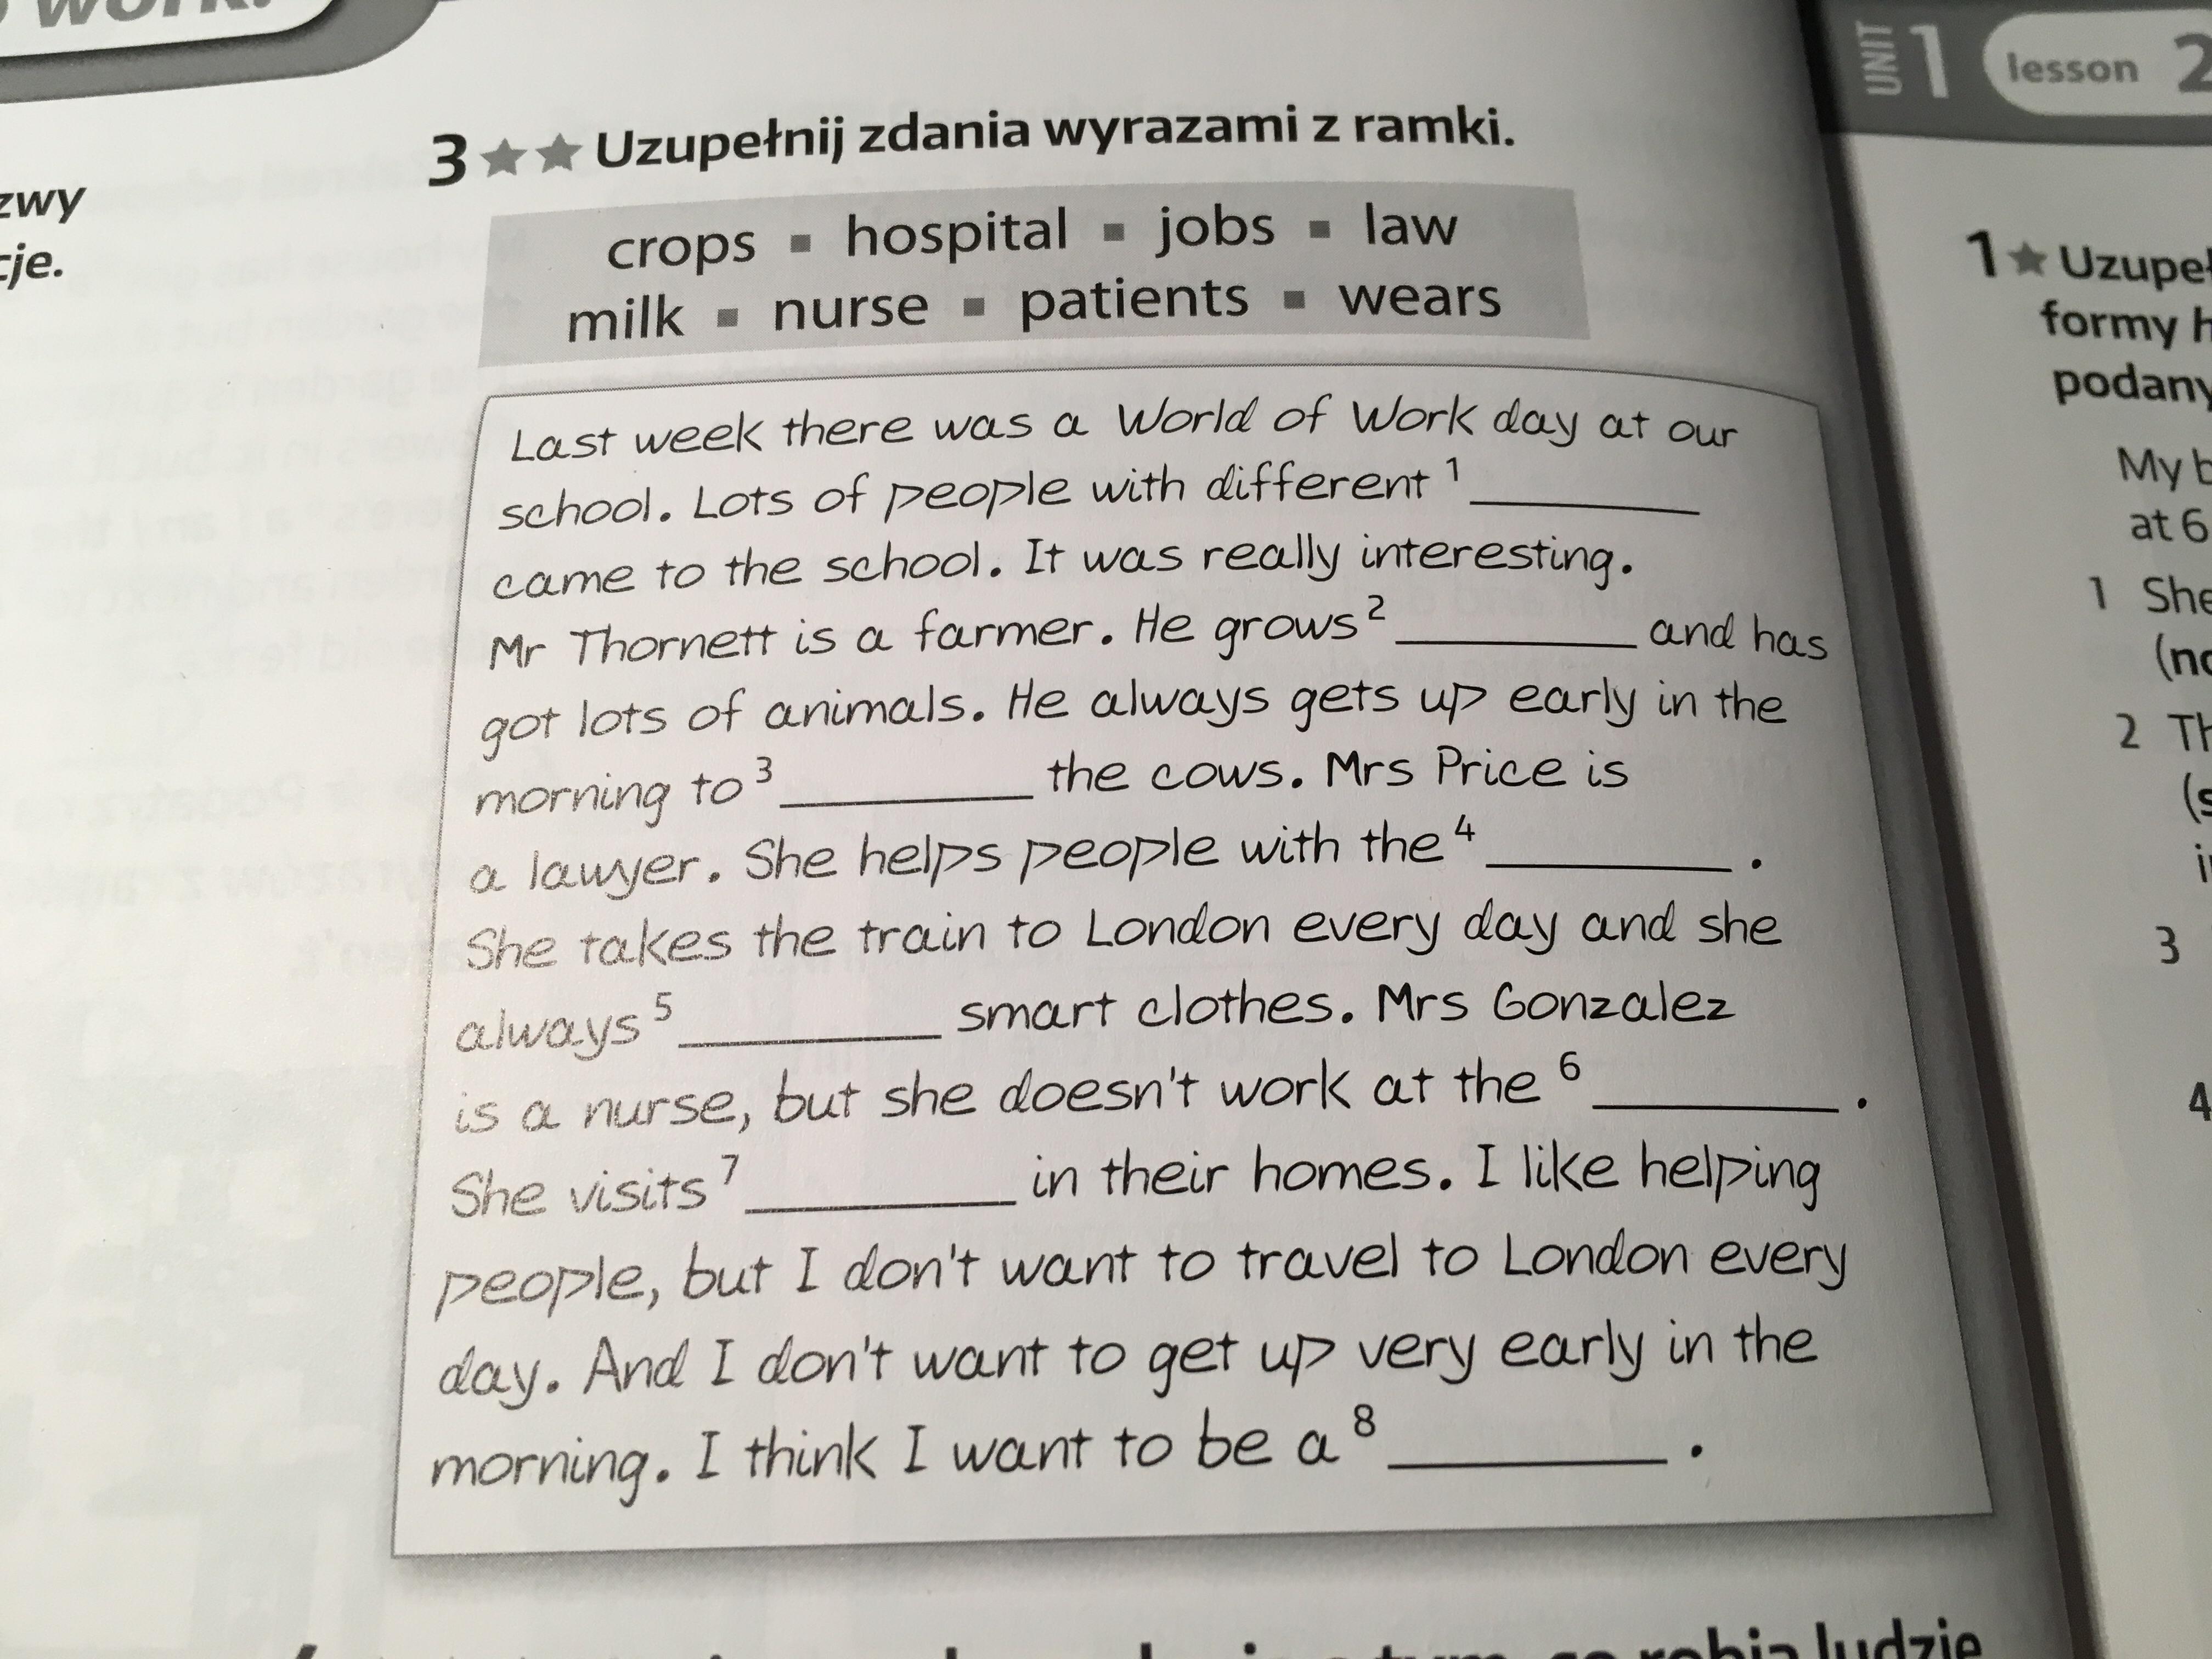 3 ★★ Uzupełnij zdania wyrazami z ramki.
crops ▪ hospital ▪ jobs ▪ law
milk ▪ nurse ▪ patients ▪ wears
Last week there was a World of Work day at our
school. Lots of people with different 1 __________
came to the school. It was really interesting.
Mr Thornett is a farmer. He grows 2 __________ and has
got lots of animals. He always gets up early in the
morning to 3 __________ the cows. Mrs Price is
a lawyer. She helps people with the 4 __________ .
She takes the train to London every day and she
always 5 __________ smart clothes. Mrs Gonzalez
is a nurse, but she doesn't work at the 6 __________ .
She visits 7 __________ in their homes. I like helping
people, but I don't want to travel to London every
day. And I don't want to get up very early in the
morning. I think I want to be a 8 __________ .
UNIT 1 lesson 2
1 ★
formy
My
at 6
1 She
2
3
4
ludzie